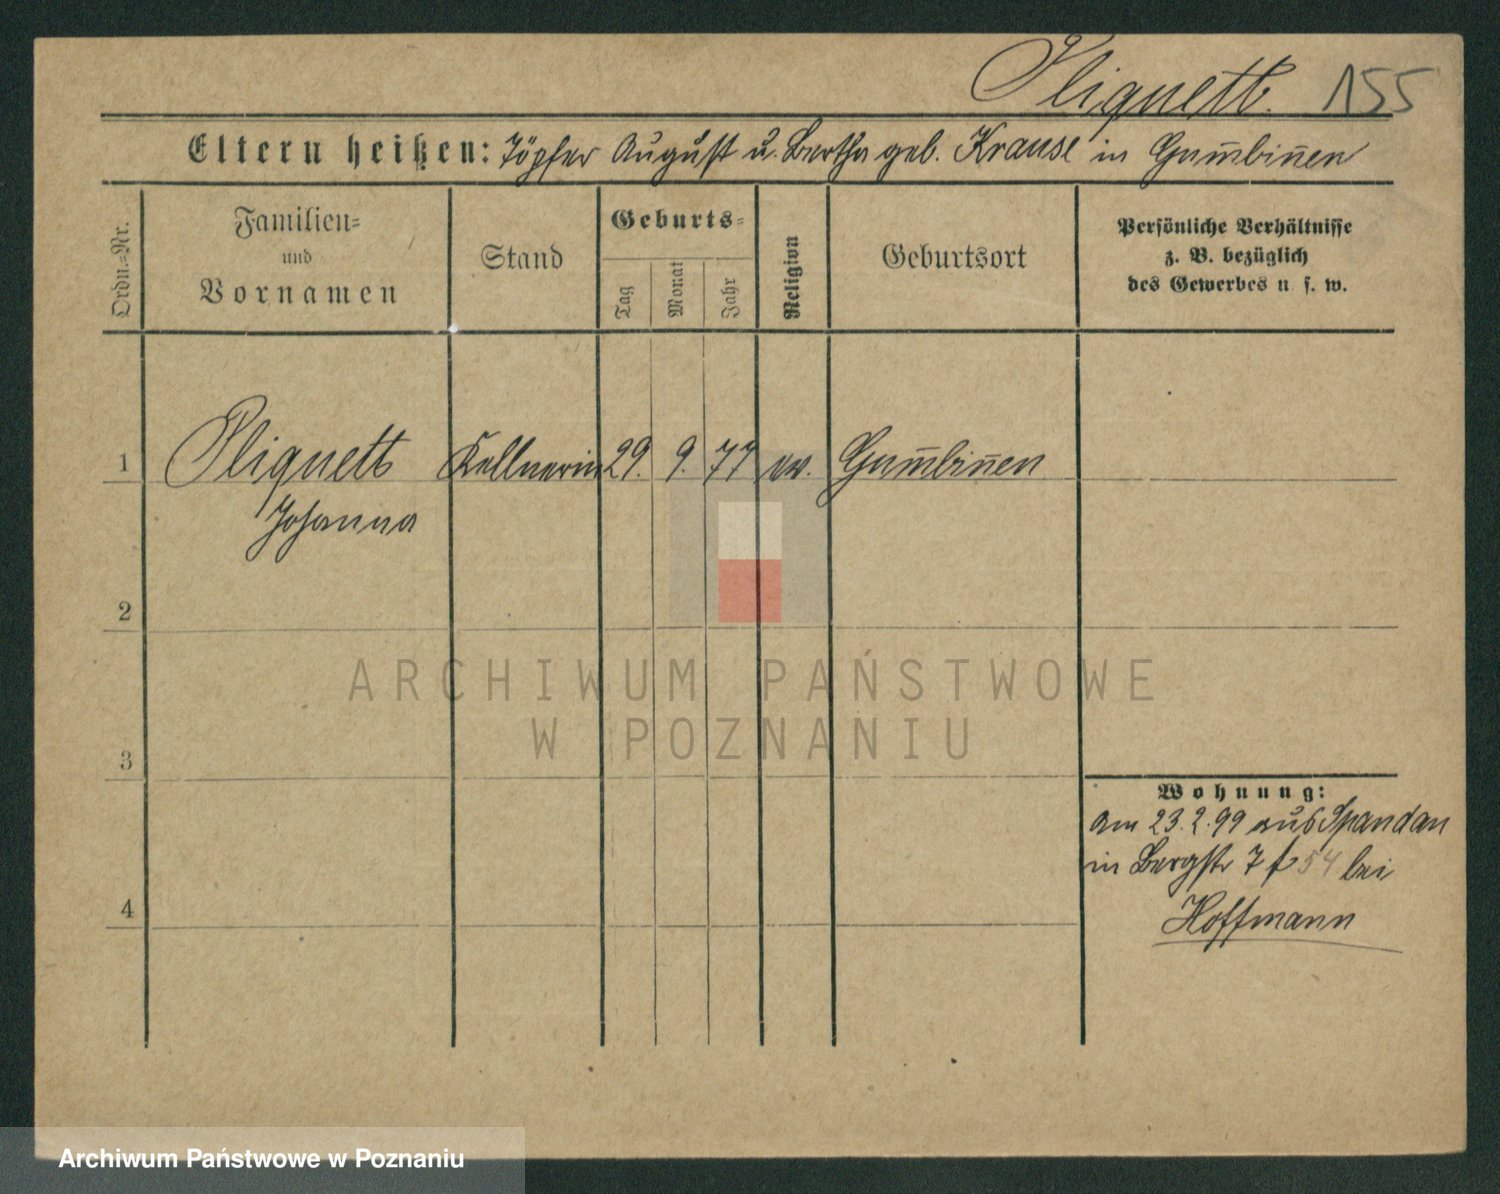 Pliquett. 155
Eltern heißen: Töpfer August u. Bertha geb. Krause in Gum̅bin̅en
Ordn.-Nr.
Familien-
und
Vornamen
Stand
Geburts-
Tag
Monat
Jahr
Religion
Geburtsort
Persönliche Verhältnisse
z. B. bezüglich
des Gewerbes u. s. w.
1 Pliquett Kellnerin 29. 9. 77 ev. Gum̅bin̅en
Johanna
2
3
4
Wohnung:
am 23.2.99 aus Spandau
in Bergstr 7 54 bei
Hoffmann
ARCHIWUM PAŃSTWOWE
W POZNANIU
Archiwum Państwowe w Poznaniu